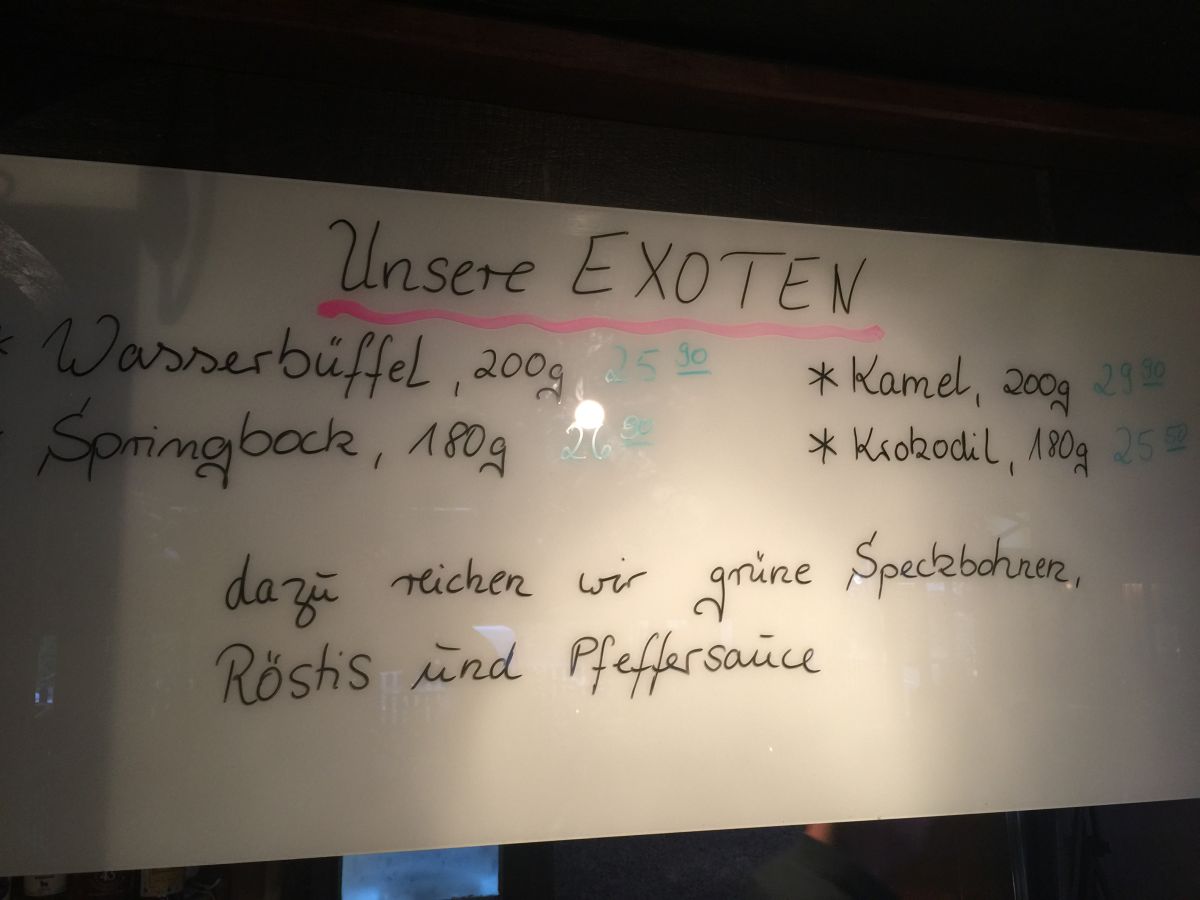 Unsere EXOTEN
* Wasserbüffel, 200g 25 90
* Springbock, 180g 26 50
* Kamel, 200g 29 90
* Krokodil, 180g 25 50
dazu reichen wir grüne Speckbohnen,
Röstis und Pfeffersauce